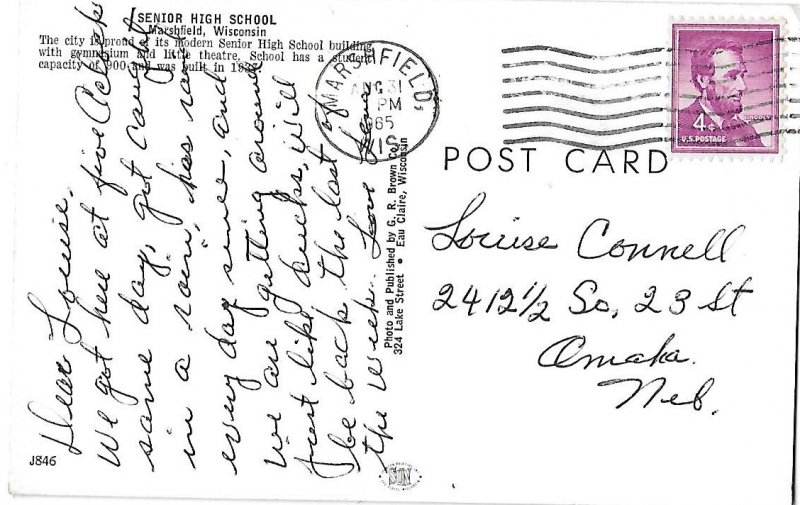 SENIOR HIGH SCHOOL
Marshfield, Wisconsin
The city is proud of its modern Senior High School building,
with gymnasium and little theatre. School has a student
capacity of 900 and was built in
Dear Louise,
We got here at five Oclock
same day, got caught
in a rain, has rained
every day since, and
we are getting around
just like ducks, will
be back the last of
the week. Love
J846
Photo and Published by G. R. Brown Co.
324 Lake Street • Eau Claire, Wisconsin
MARSHFIELD,
AUG 31
PM
1965
WIS
4¢
LINCOLN
U.S. POSTAGE
POST CARD
Louise Connell
2412½ So, 23 St
Omaha.
Neb.
SUN